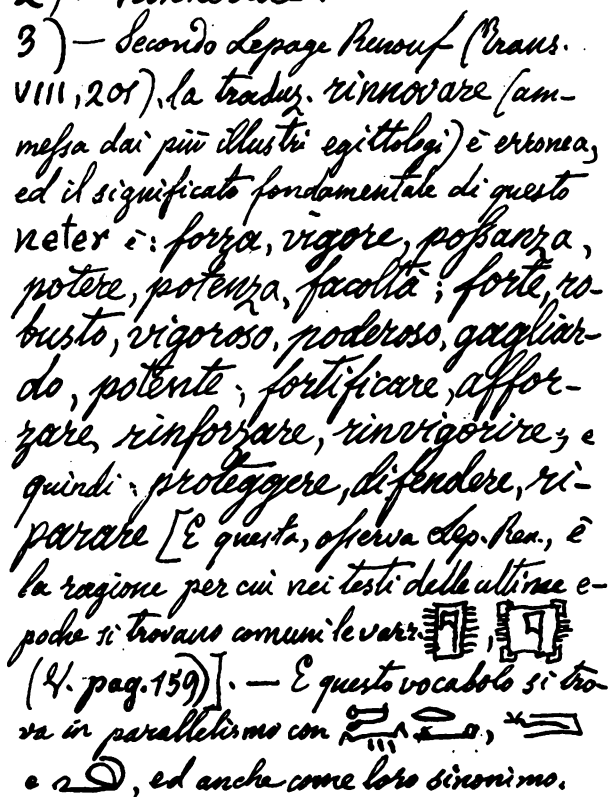 3) — Secondo Lepage Renouf (Trans.
VIII, 201), la traduz. rinnovare (am-
messa dai più illustri egittologi) è erronea,
ed il significato fondamentale di questo
neter è: forza, vigore, possanza,
potere, potenza, facoltà; forte, ro-
busto, vigoroso, poderoso, gagliar-
do, potente; fortificare, affor-
zare, rinforzare, rinvigorire; e
quindi: proteggere, difendere, ri-
parare [E questa, osserva Lep. Ren., è
la ragione per cui nei testi delle ultime e-
poche si trovano comuni le varr. ,
(V. pag. 159)]. — E questo vocabolo si tro-
va in parallelismo con ,
e , ed anche come loro sinonimo.